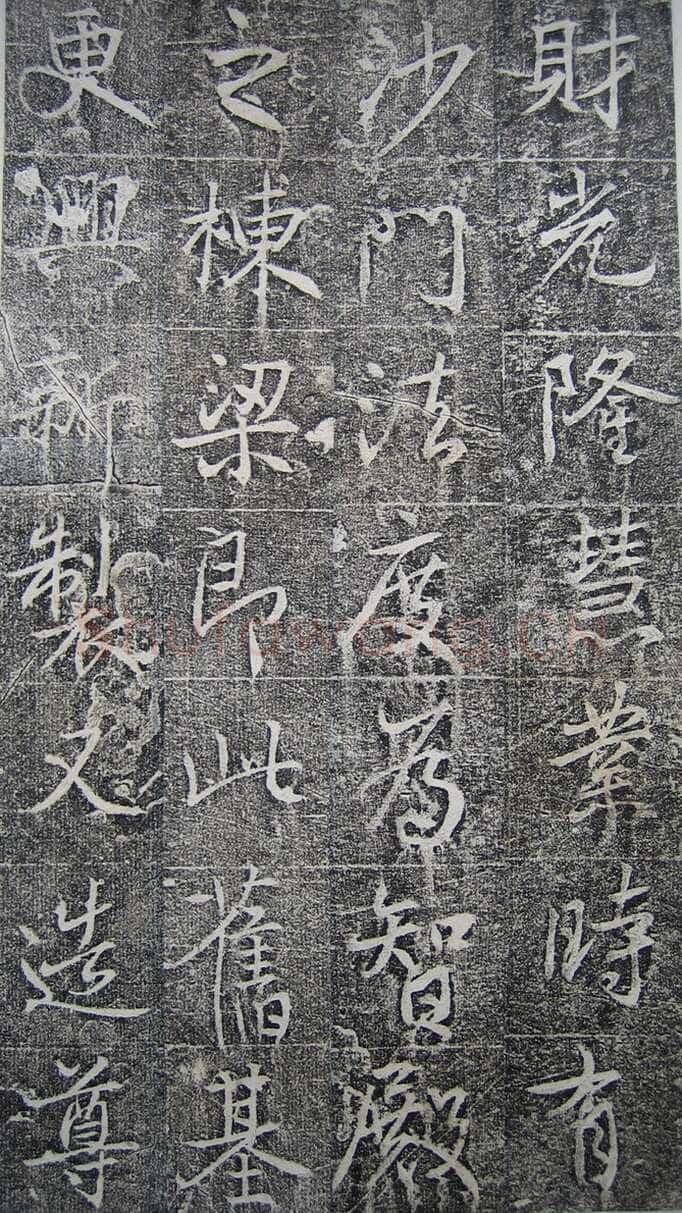 財光隆慧業時有
沙門法度為智殿
之棟梁即此舊基
更興新製又造尊
Shufawang.CN